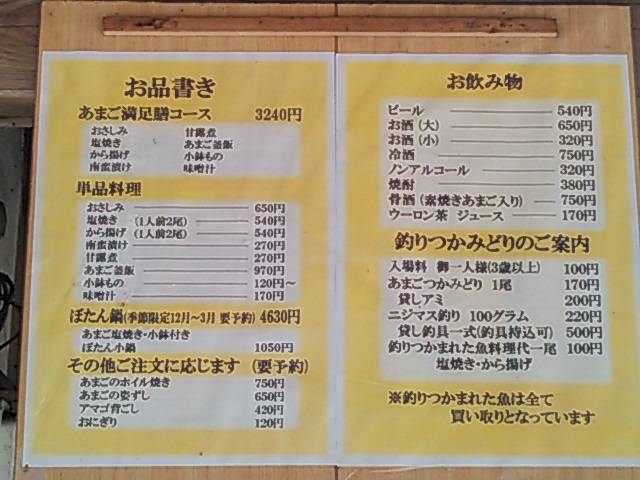 お品書き
あまご満足膳コース 3240円
おさしみ 甘露煮
塩焼き あまご釜飯
から揚げ 小鉢もの
南蛮漬け 味噌汁
単品料理
おさしみ 650円
塩焼き (1人前2尾) 540円
から揚げ (1人前2尾) 540円
南蛮漬け 270円
甘露煮 270円
あまご釜飯 970円
小鉢もの 120円～
味噌汁 170円
ぼたん鍋(季節限定12月～3月 要予約) 4630円
あまご塩焼き・小鉢付き
ぼたん小鍋 1050円
その他ご注文に応じます (要予約)
あまごのホイル焼き 750円
あまごの姿ずし 650円
アマゴ背ごし 420円
おにぎり 120円
お飲み物
ビール 540円
お酒 (大) 650円
お酒 (小) 320円
冷酒 750円
ノンアルコール 320円
焼酎 380円
骨酒 (素焼きあまご入り) 750円
ウーロン茶 ジュース 170円
釣りつかみどりのご案内
入場料 御一人様(3歳以上) 100円
あまごつかみどり 1尾 170円
貸しアミ 200円
ニジマス釣り 100グラム 220円
貸し釣具一式(釣具持込可) 500円
釣りつかまれた魚料理代一尾 100円
塩焼き・から揚げ
※釣りつかまれた魚は全て
買い取りとなっています